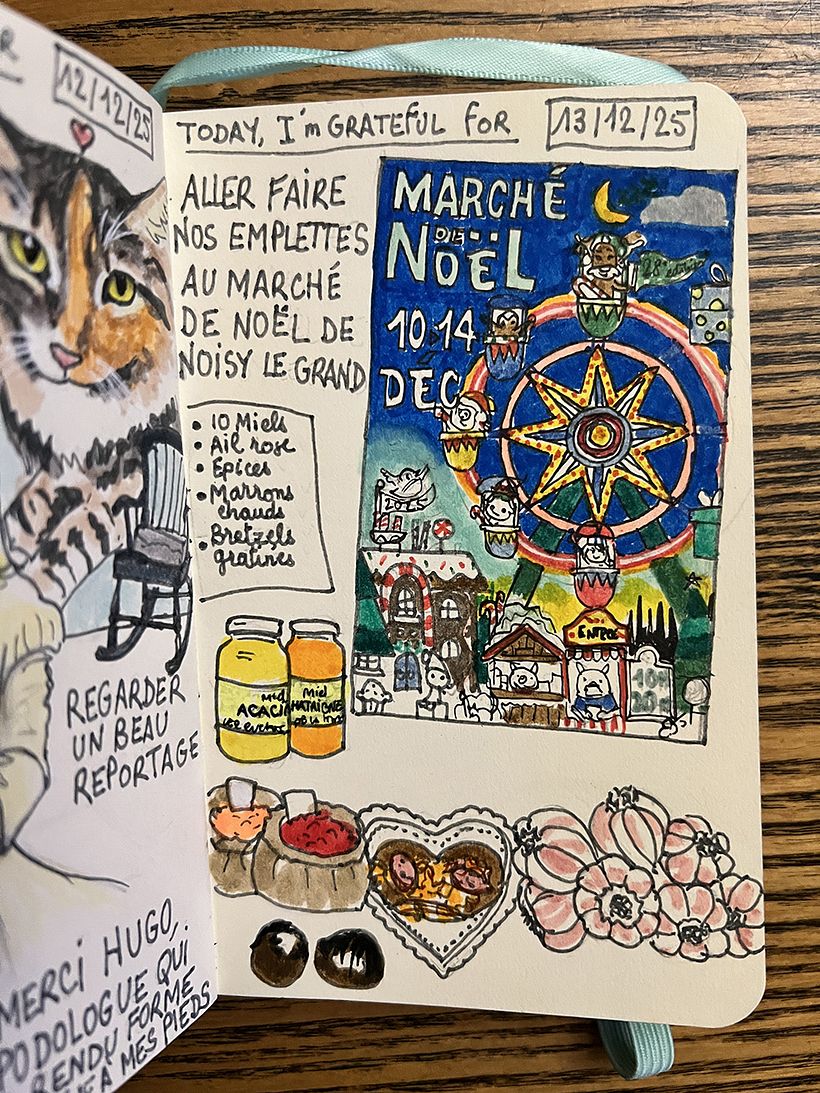 12/12/25
REGARDER
UN BEAU
REPORTAGE
MERCI HUGO,
PODOLOGUE QUI
RENDU FORME
À MES PIEDS
TODAY, I'm GRATEFUL FOR
13/12/25
ALLER FAIRE
NOS EMPLETTES
AU MARCHÉ
DE NOËL DE
NOISY LE GRAND
• 10 Miels
• Ail rose
• Épices
• Marrons
chauds
• Bretzels
gratinés
MARCHÉ
DE
NOËL
28e
10 14
DÉC
2025
ENTRÉE
Miel
ACACIA
Miel